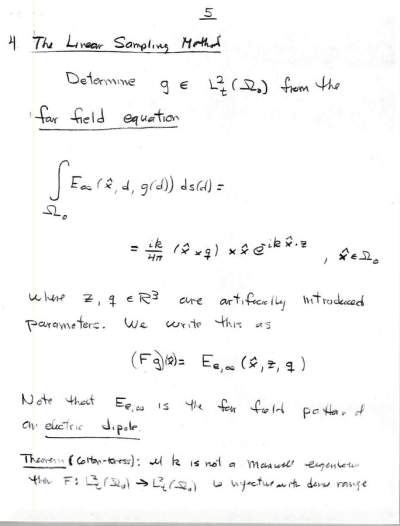 5
4 The Linear Sampling Method
Determine g ∈ L²ₜ(Ω₀) from the
far field equation
∫_Ω₀ E∞(x̂, d, g(d)) ds(d) =
= ik/4π (x̂ × q) × x̂ e^{-ik x̂·z} , x̂ ∈ Ω₀
where z, q ∈ R³ are artificially introduced
parameters. We write this as
(Fg)(x̂) = E_{e,∞}(x̂, z, q)
Note that E_{e,∞} is the far field pattern of
an electric dipole.
Theorem (Colton-Kress): If k is not a Maxwell eigenvalue
then F: L²ₜ(Ω₀) → L²ₜ(Ω₀) is injective with dense range